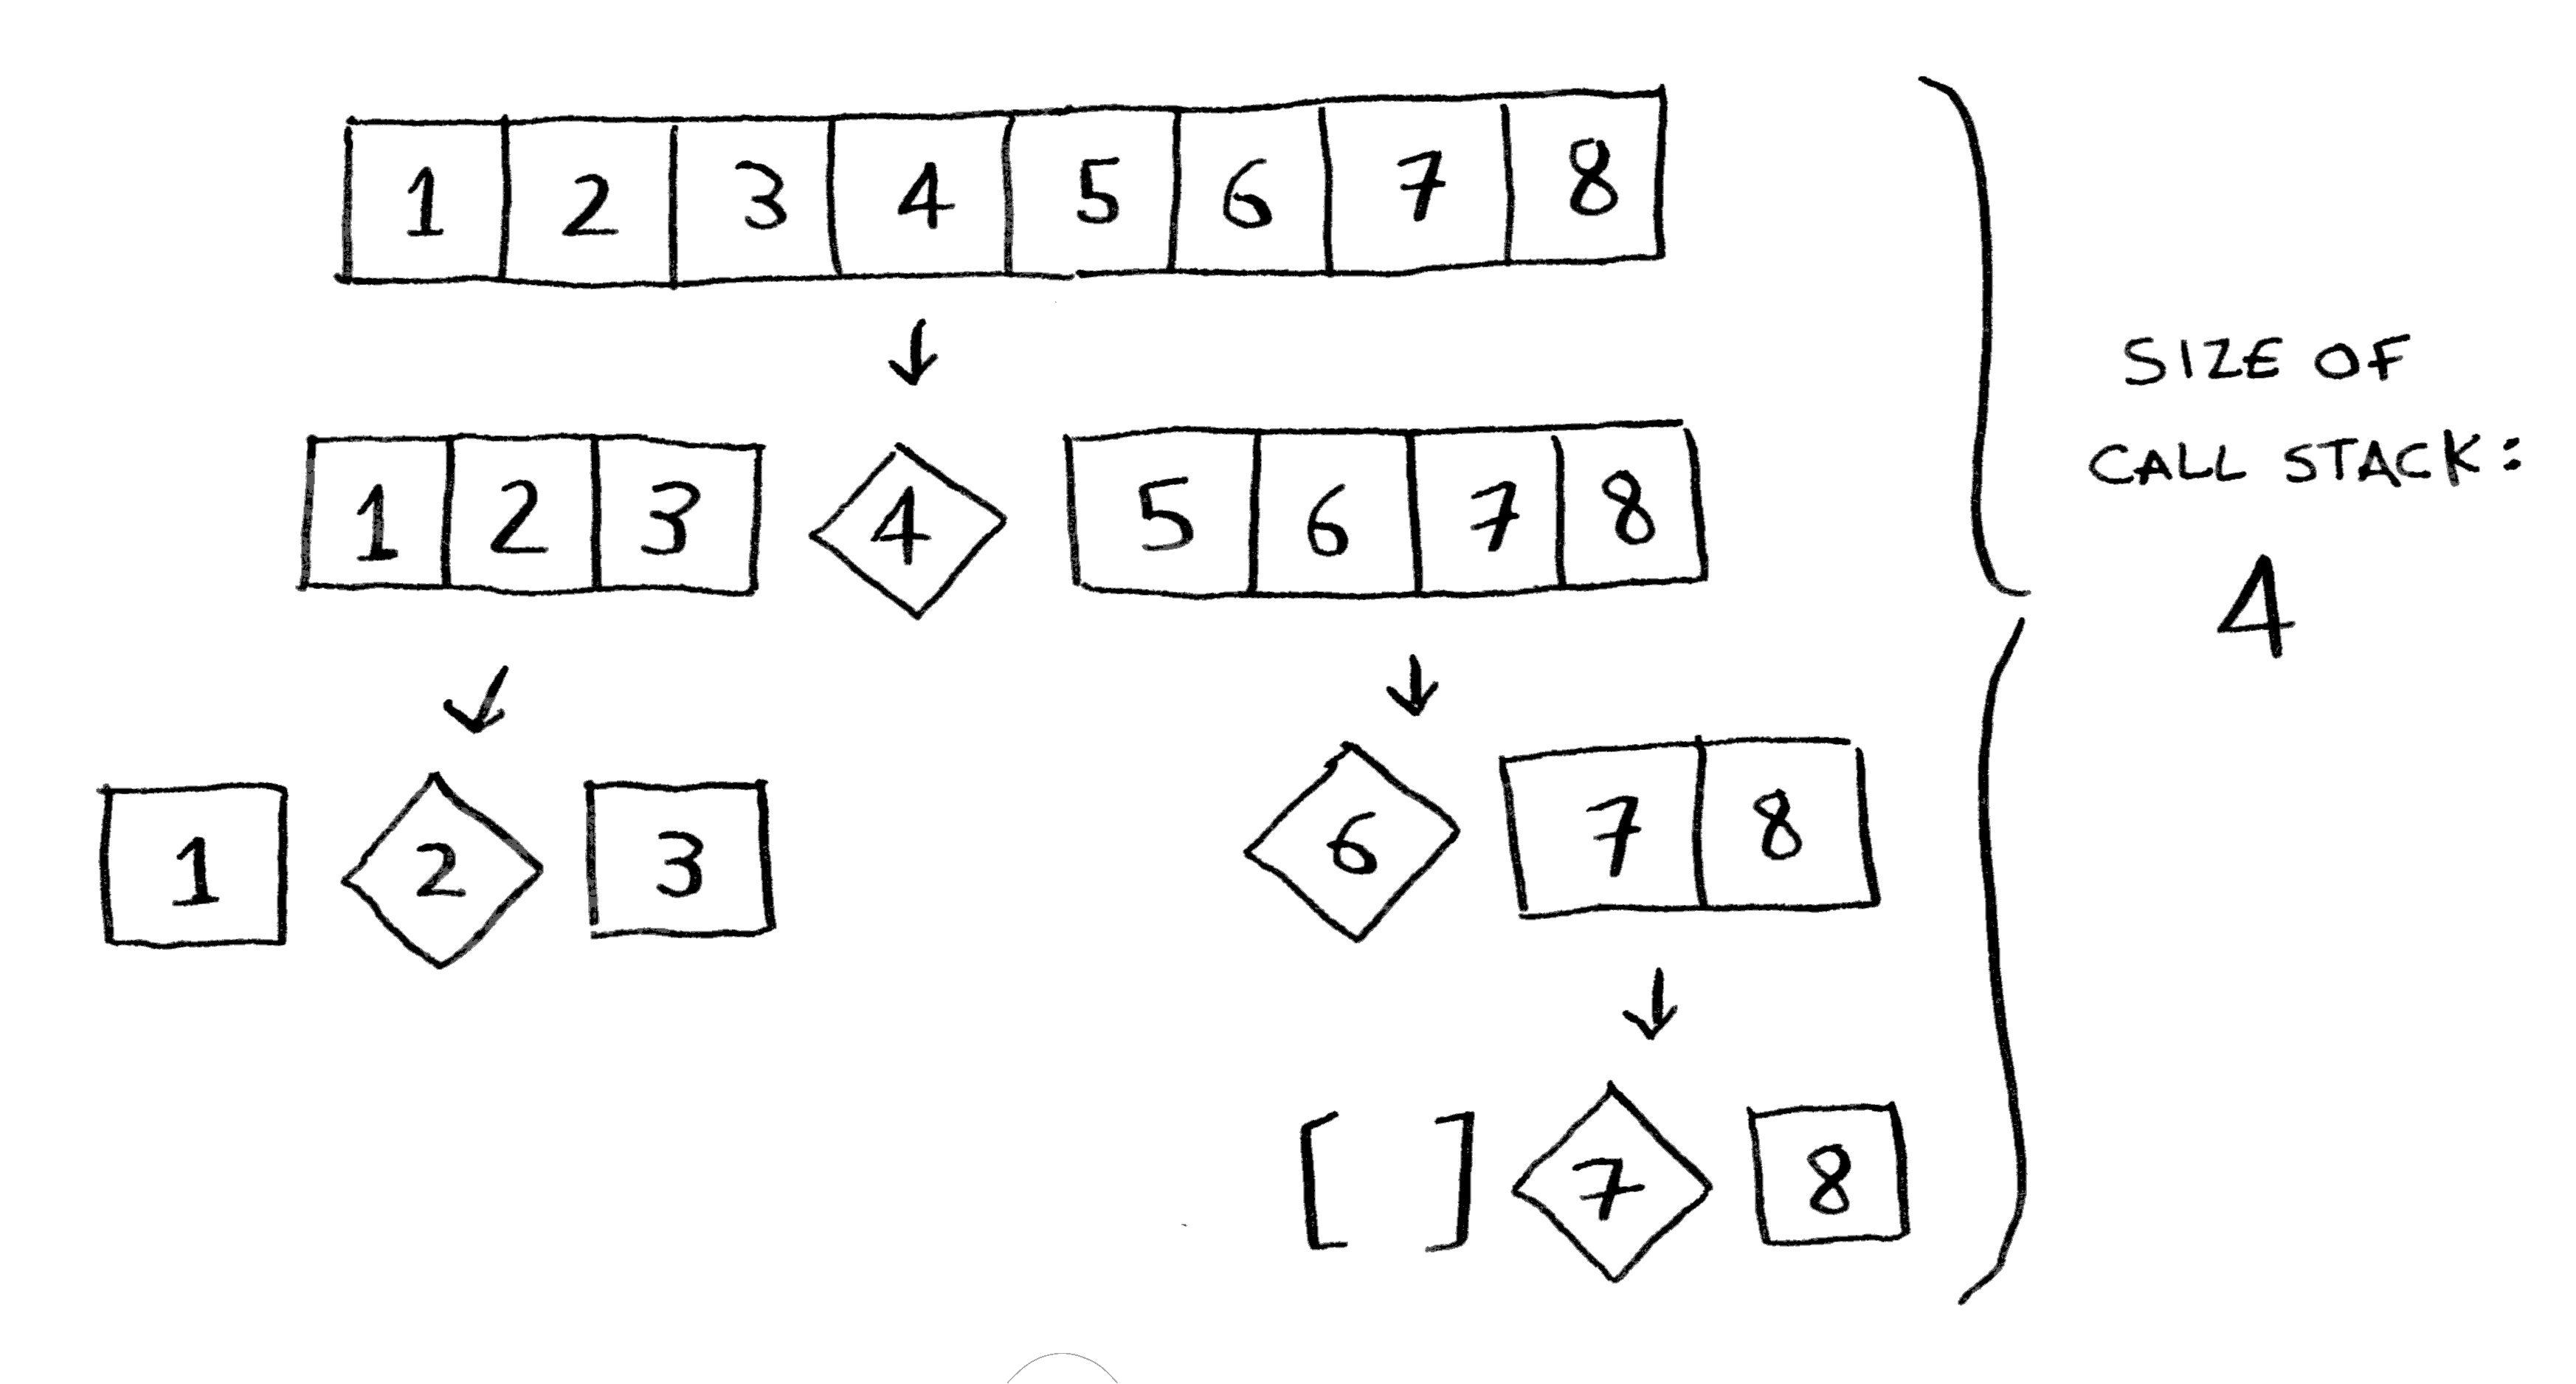 1 2 3 4 5 6 7 8
1 2 3 4 5 6 7 8
1 2 3 6 7 8
[ ] 7 8
SIZE OF
CALL STACK:
4